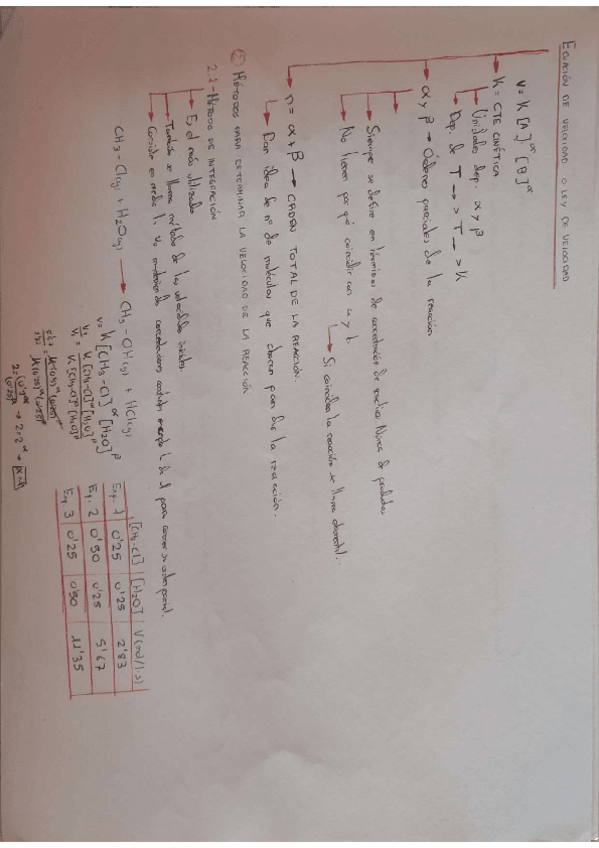 ECUACIÓN DE VELOCIDAD O LEY DE VELOCIDAD
v = K [A]^α · [B]^α
K = CTE CINÉTICA
Unidades dep. α y β
Dep. de T → > T → > K
α y β → Órdenes parciales de la reacción
Siempre se define en términos de concentración de reactivos. Nunca de productos
No tienen por qué coincidir con a y b
Si coinciden la reacción se llama elemental.
n = α + β → ORDEN TOTAL DE LA REACCIÓN.
Dan idea de nº de moléculas que chocan para dar la reacción.
② MÉTODOS PARA DETERMINAR LA VELOCIDAD DE LA REACCIÓN
2.1- MÉTODO DE INTEGRACIÓN
Es el más utilizado
También se llama método de las velocidades iniciales
Consiste en medir la v₀ manteniendo concentraciones constantes excepto la de 1 para conocer su orden parcial.
CH3 - Cl(g) + H2O(g) → CH3 - OH(g) + HCl(g)
v = K [CH3-Cl]^α [H2O]^β
[CH3-Cl] | [H2O] | V (mol/l·s)
Exp. 1 0'25 0'25 2'83
Exp. 2 0'50 0'25 5'67
Exp. 3 0'25 0'50 11'35
2 = 2^α → α=1